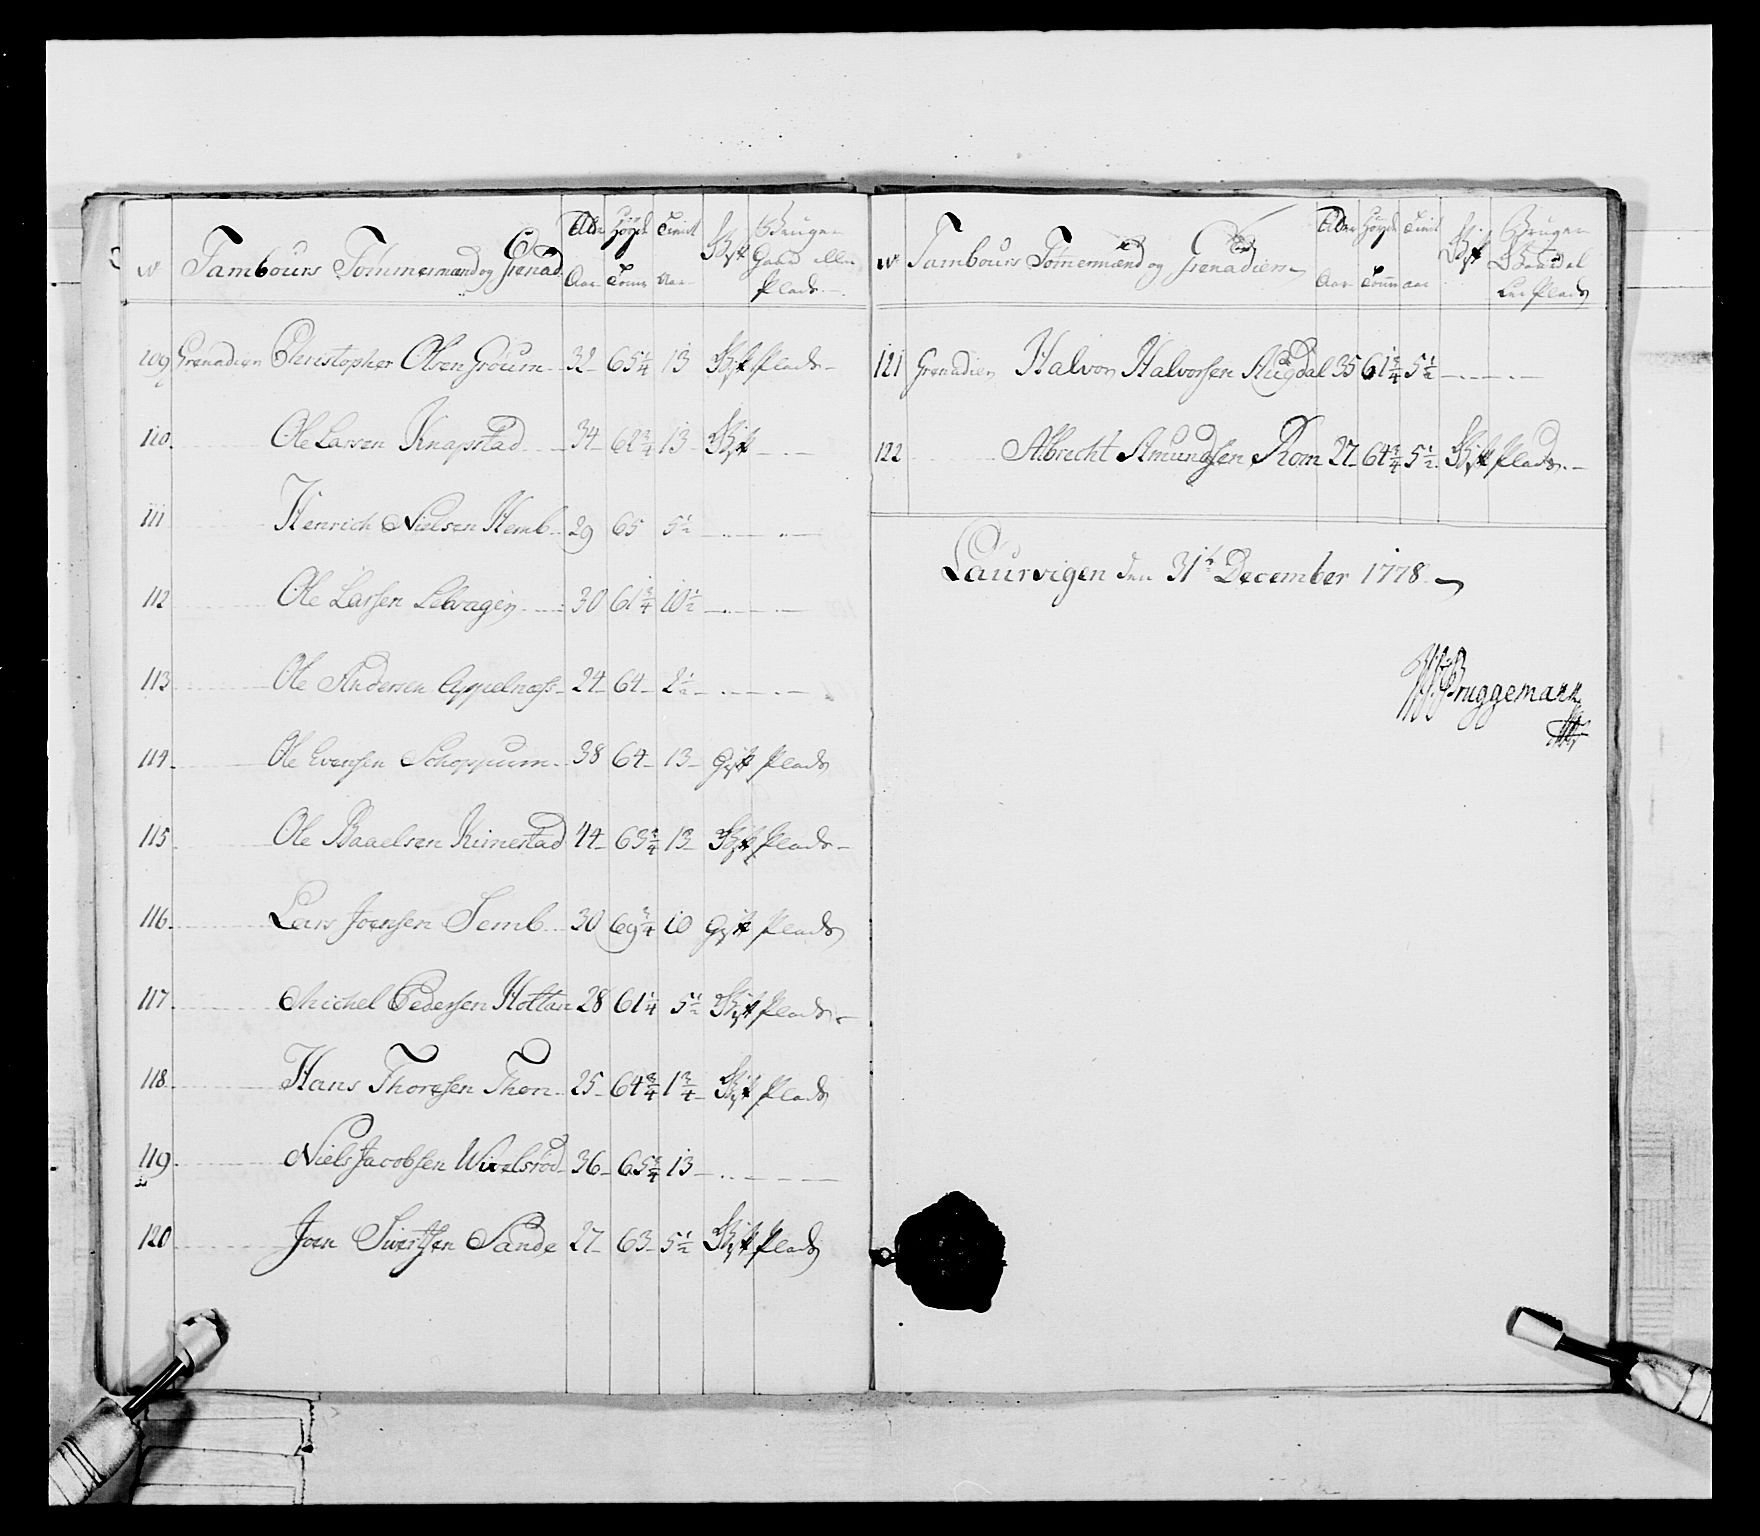 No Tambours Tømmermænd og Grenad. Alder Aar Høyde Tomr Tient Aar Gift Bruger Gaard eller Plads
109 Grenadier Christopher Olsen Gröum 32 65 1/4 13 Gift Plads
110 Ole Larsen Knapstad 34 62 3/4 13 Gift
111 Henrich Nielsen Hemb 29 65 5 1/2
112 Ole Larsen 30 61 3/4 10 1/2
113 Ole Andersen Appelnæss 24 64 2 1/2
114 Ole Evensen Schoppum 38 64 13 Gift Plads
115 Ole Kimestad 44 63 3/4 13 Gift Plads
116 Lars Joensen Semb 30 69 3/4 10 Gift Plads
117 Michel Pedersen Holtan 28 61 1/4 5 1/2 Gift Plads
118 Hans Thoresen Thon 25 64 3/4 1 3/4 Gift Plads
119 Niels Jacobsen Wivelsröd 36 65 3/4 13
120 Joen Sivertsen Sande 27 63 5 1/2 Gift Plads
No Tambours Tømmermænd og Grenadiern Alder Aar Høyde Tomr Tient aar Gift Bruger Plads
121 Grenadier Halvor Halvorsen Augdal 35 61 3/4 5 1/2
122 Albrecht Amundsen Rom 27 64 3/4 5 1/2 Gift Plads
Laurvigen den 31t December 1778
Bruggemann